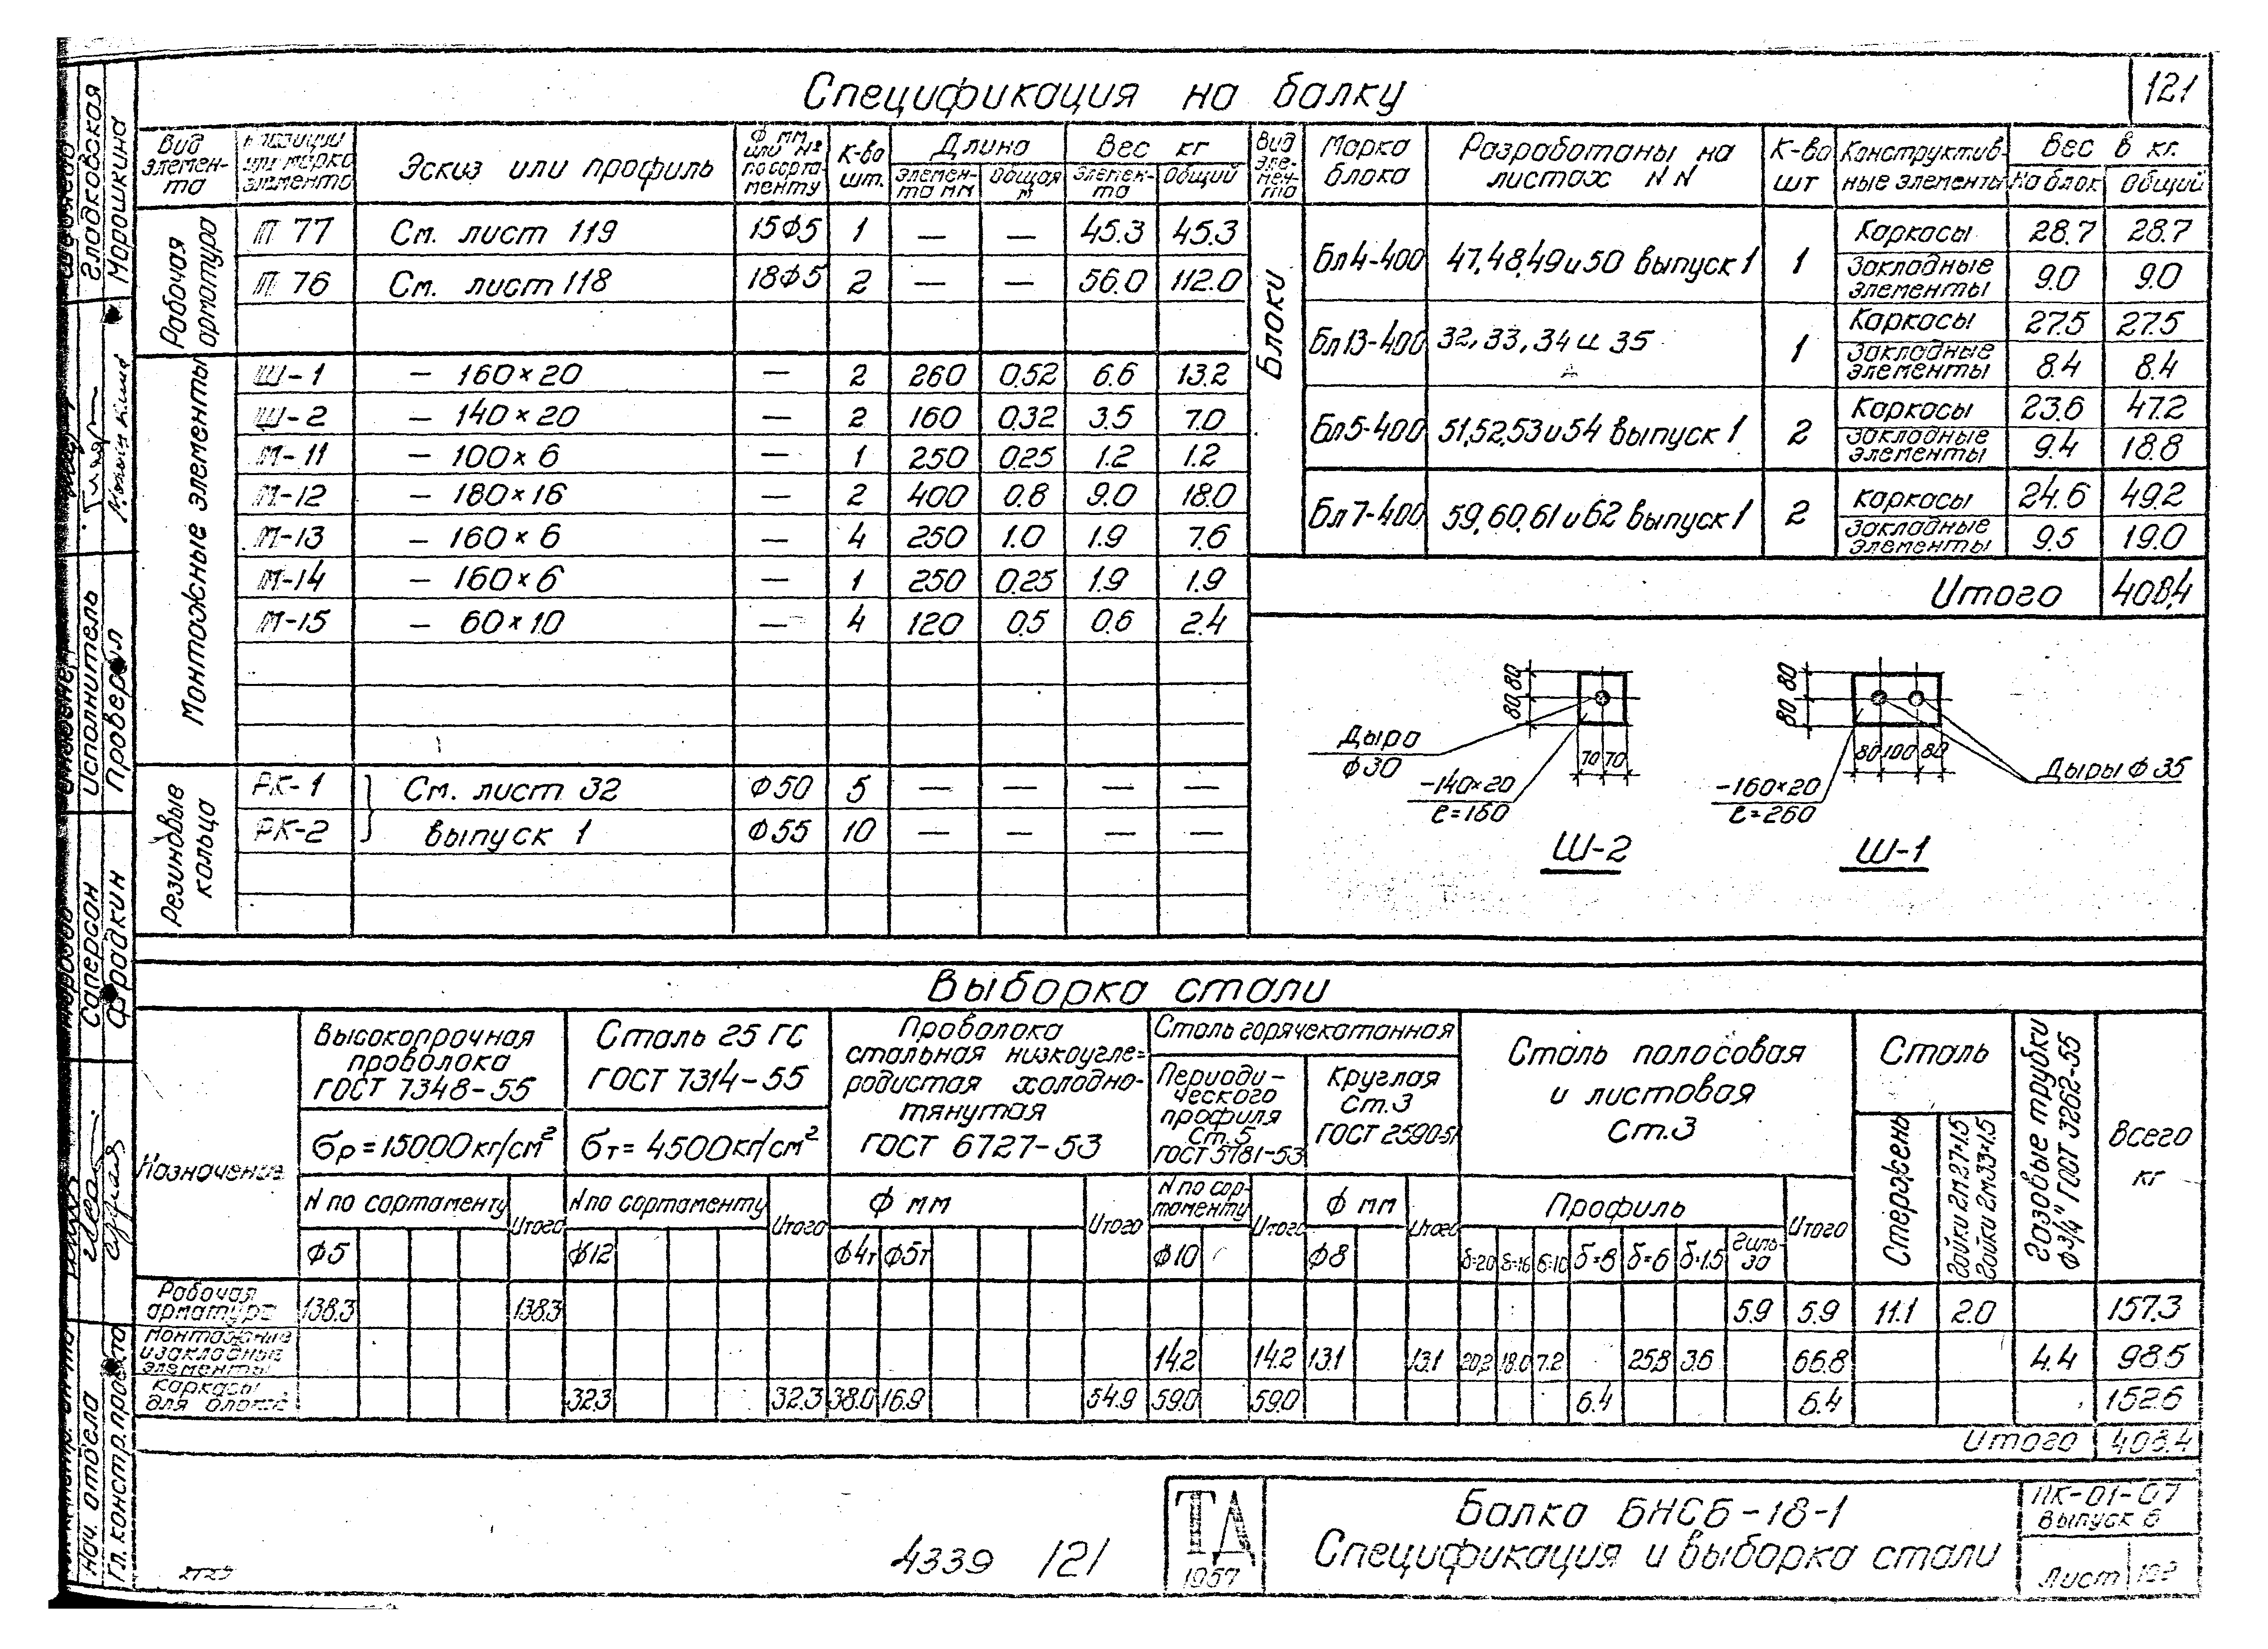 Спецификация на балку
121
Вид элемен-та | № позиции или марка элемента | Эскиз или профиль | Ф мм или № по сорта-менту | К-во шт. | Длина | Вес кг
элемен-та мм | общая м | элемен-та | общий
Рабочая арматура
П 77 | См. лист 119 | 15Ф5 | 1 | — | — | 45.3 | 45.3
П 76 | См. лист 118 | 18Ф5 | 2 | — | — | 56.0 | 112.0
Монтажные элементы
Ш-1 | – 160×20 | — | 2 | 260 | 0.52 | 6.6 | 13.2
Ш-2 | – 140×20 | — | 2 | 160 | 0.32 | 3.5 | 7.0
М-11 | – 100×6 | — | 1 | 250 | 0.25 | 1.2 | 1.2
М-12 | – 180×16 | — | 2 | 400 | 0.8 | 9.0 | 18.0
М-13 | – 160×6 | — | 4 | 250 | 1.0 | 1.9 | 7.6
М-14 | – 160×6 | — | 1 | 250 | 0.25 | 1.9 | 1.9
М-15 | – 60×10 | — | 4 | 120 | 0.5 | 0.6 | 2.4
Резиновые кольца
РК-1 | См. лист 32 | Ф50 | 5 | — | — | — | —
РК-2 | выпуск 1 | Ф55 | 10 | — | — | — | —
Вид эле-мен-та | Марка блока | Разработаны на листах NN | К-во шт | Конструктив-ные элементы | Вес в кг.
На блок | Общий
Блоки
Бл4-400 | 47,48,49 и 50 выпуск 1 | 1 | Каркасы | 28.7 | 28.7
Закладные элементы | 9.0 | 9.0
Бл13-400 | 32, 33, 34 и 35 | 1 | Каркасы | 27.5 | 27.5
Закладные элементы | 8.4 | 8.4
Бл5-400 | 51,52,53 и 54 выпуск 1 | 2 | Каркасы | 23.6 | 47.2
Закладные элементы | 9.4 | 18.8
Бл7-400 | 59,60,61 и 62 выпуск 1 | 2 | Каркасы | 24.6 | 49.2
Закладные элементы | 9.5 | 19.0
Итого | 408,4
80 80
Дыра Ф30
70 70
–140×20
ℓ=160
Ш-2
80 80
80 100 80
Дыры Ф 35
–160×20
ℓ=260
Ш-1
Выборка стали
Назначение
Высокопрочная проволока ГОСТ 7348-55
бр=15000кг/см²
N по сортаменту | Итого
Ф5
Сталь 25 ГС ГОСТ 7314-55
бт=4500кг/см²
N по сортаменту | Итого
Ф12
Проволока стальная низкоугле=родистая холодно-тянутая ГОСТ 6727-53
Ф мм | Итого
Ф4т | Ф5т
Сталь горячекатанная
Периоди-ческого профиля Ст.5 ГОСТ 5781-53
N по сор-таменту | Итого
Ф10
Круглая Ст.3 ГОСТ 2590-51
Ф мм | Итого
Ф8
Сталь полосовая и листовая Ст.3
Профиль | Итого
б=20 | б=16 | б=10 | б=8 | б=6 | б=1.5 | Гиль-за
Сталь
Стержень
Гайки 2м27×1.5
Гайки 2м33×1.5
Газовые трубки Ф3/4" ГОСТ 3262-55
Всего кг
Рабочая арматура | 138.3 | 138.3 | 5.9 | 5.9 | 11.1 | 2.0 | 157.3
Монтажные и закладные элементы | 14.2 | 14.2 | 13.1 | 13.1 | 20.2 | 18.0 | 7.2 | 25.8 | 3.6 | 66.8 | 4.4 | 98.5
Каркасы для блока | 32.3 | 32.3 | 38.0 | 16.9 | 54.9 | 59.0 | 59.0 | 6.4 | 6.4 | 152.6
Итого | 408.4
ТД
1957
Балка БНСБ-18-1
Спецификация и выборка стали
ПК-01-07
Выпуск 6
Лист
4339 121
Гладковская
Марошкина
Исполнитель
Проверил
Саперсон
Фрадкин
Нач. отдела
Гл. констр. проекта